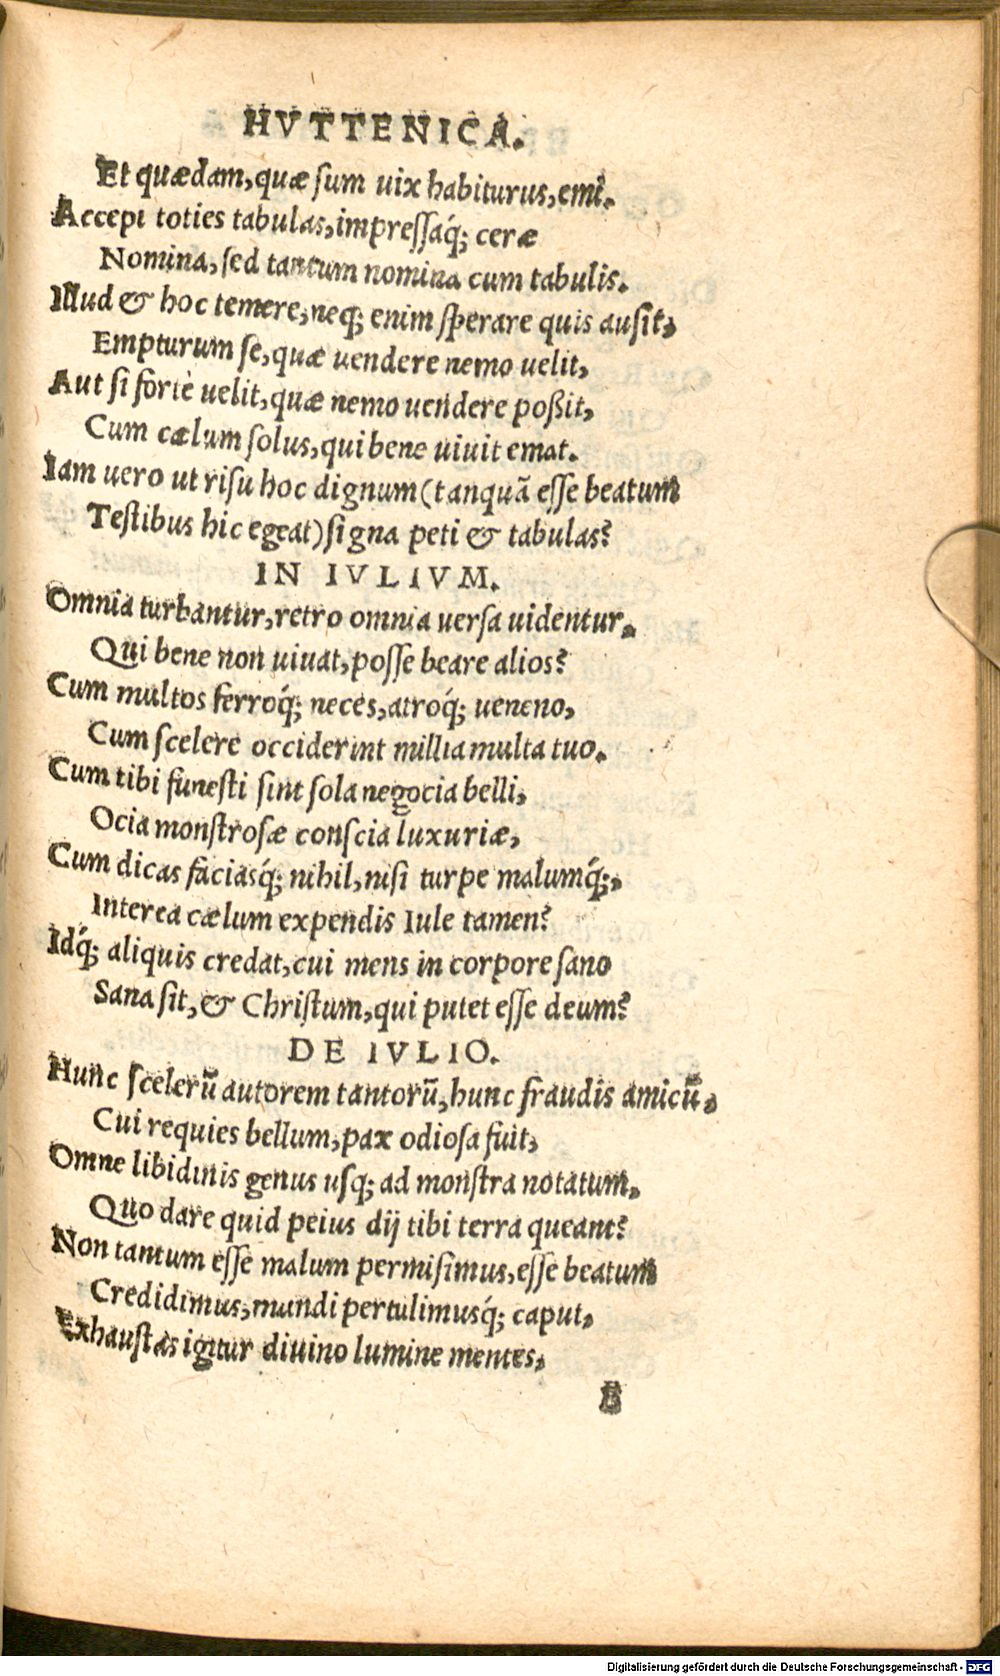 HVTTENICA.
Et quædam, quæ sum uix habiturus, emi.
Accepi toties tabulas, impressaq́; ceræ
Nomina, sed tantum nomina cum tabulis.
Illud & hoc temere, neq; enim sperare quis ausit,
Empturum se, quæ uendere nemo uelit,
Aut si forte uelit, quæ nemo uendere poßit,
Cum cælum solus, qui bene uiuit emat.
Iam uero ut risu hoc dignum (tanquā esse beatum
Testibus hic egeat) signa peti & tabulas?
IN IVLIVM.
Omnia turbantur, retro omnia uersa uidentur,
Qui bene non uiuat, posse beare alios?
Cum multos ferroq́; neces, atroq́; ueneno,
Cum scelere occiderint millia multa tuo.
Cum tibi funesti sint sola negocia belli,
Ocia monstrosæ conscia luxuriæ,
Cum dicas faciasq́; nihil, nisi turpe malumq́;,
Interea cælum expendis Iule tamen?
Idq́; aliquis credat, cui mens in corpore sano
Sana sit, & Christum, qui putet esse deum?
DE IVLIO.
Hunc scelerū autorem tantorū, hunc fraudis amicū,
Cui requies bellum, pax odiosa fuit,
Omne libidinis genus usq; ad monstra notatum,
Quo dare quid peius dij tibi terra queant?
Non tantum esse malum permisimus, esse beatum
Credidimus, mundi pertulimusq́; caput,
Exhaustas igitur diuino lumine mentes,
B
Digitalisierung gefördert durch die Deutsche Forschungsgemeinschaft - DFG